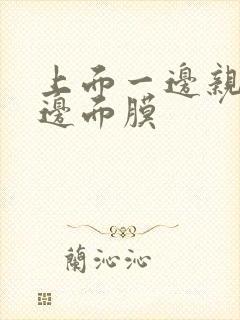 上而一邊親
邊而膜
蘭沁沁